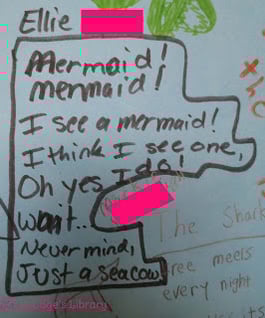 Ellie
Mermaid!
mermaid!
I see a mermaid!
I think I see one,
Oh yes I do!
wait..
Never mind,
Just a seacow
The Shark
free meels
every night
Library